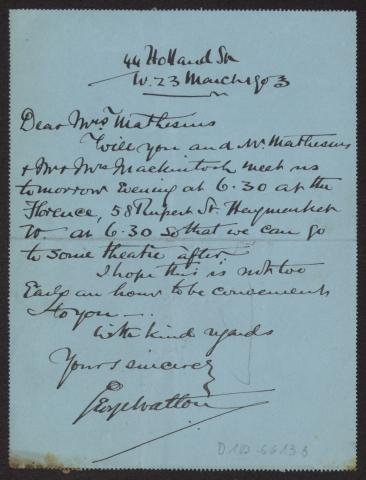 44 Holland St
W. 23 March 1903
Dear Mrs Mathesius
Will you and Mr. Mathesius
& Mr & Mrs Mackintosh meet us
tomorrow Evening at 6.30 at the
Florence, 58 Rupert St. Haymarket
W. at 6.30 so that we can go
to some theatre after.
I hope this is not too
Early an hour to be convenient
to you —.
With kind regards
Yours sincerely
George Walton
D 102-6613 b